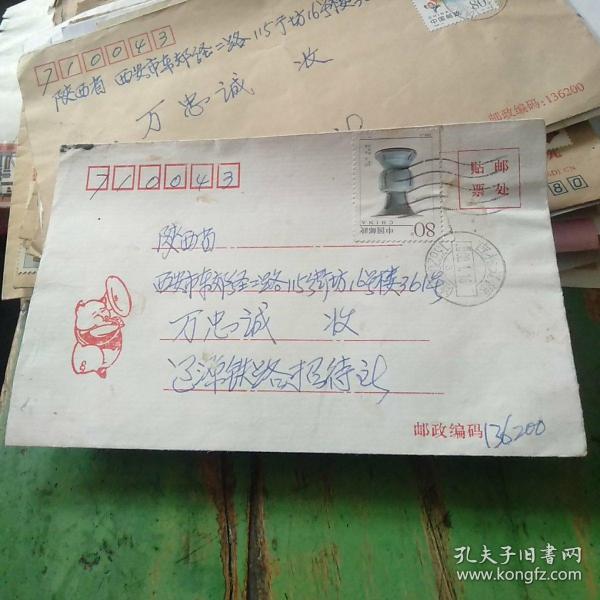 710043
陕西省 西安市东郊经二路115字坊16号楼
万忠诚 收
邮政编码:136200
80
710043
贴邮
票处
中国邮政
CHINA
80
陕西省
西安市东郊经二路115街坊16号楼361号
万忠诚 收
辽源铁路招待所
邮政编码136200
孔夫子旧书网
www.kongfz.com